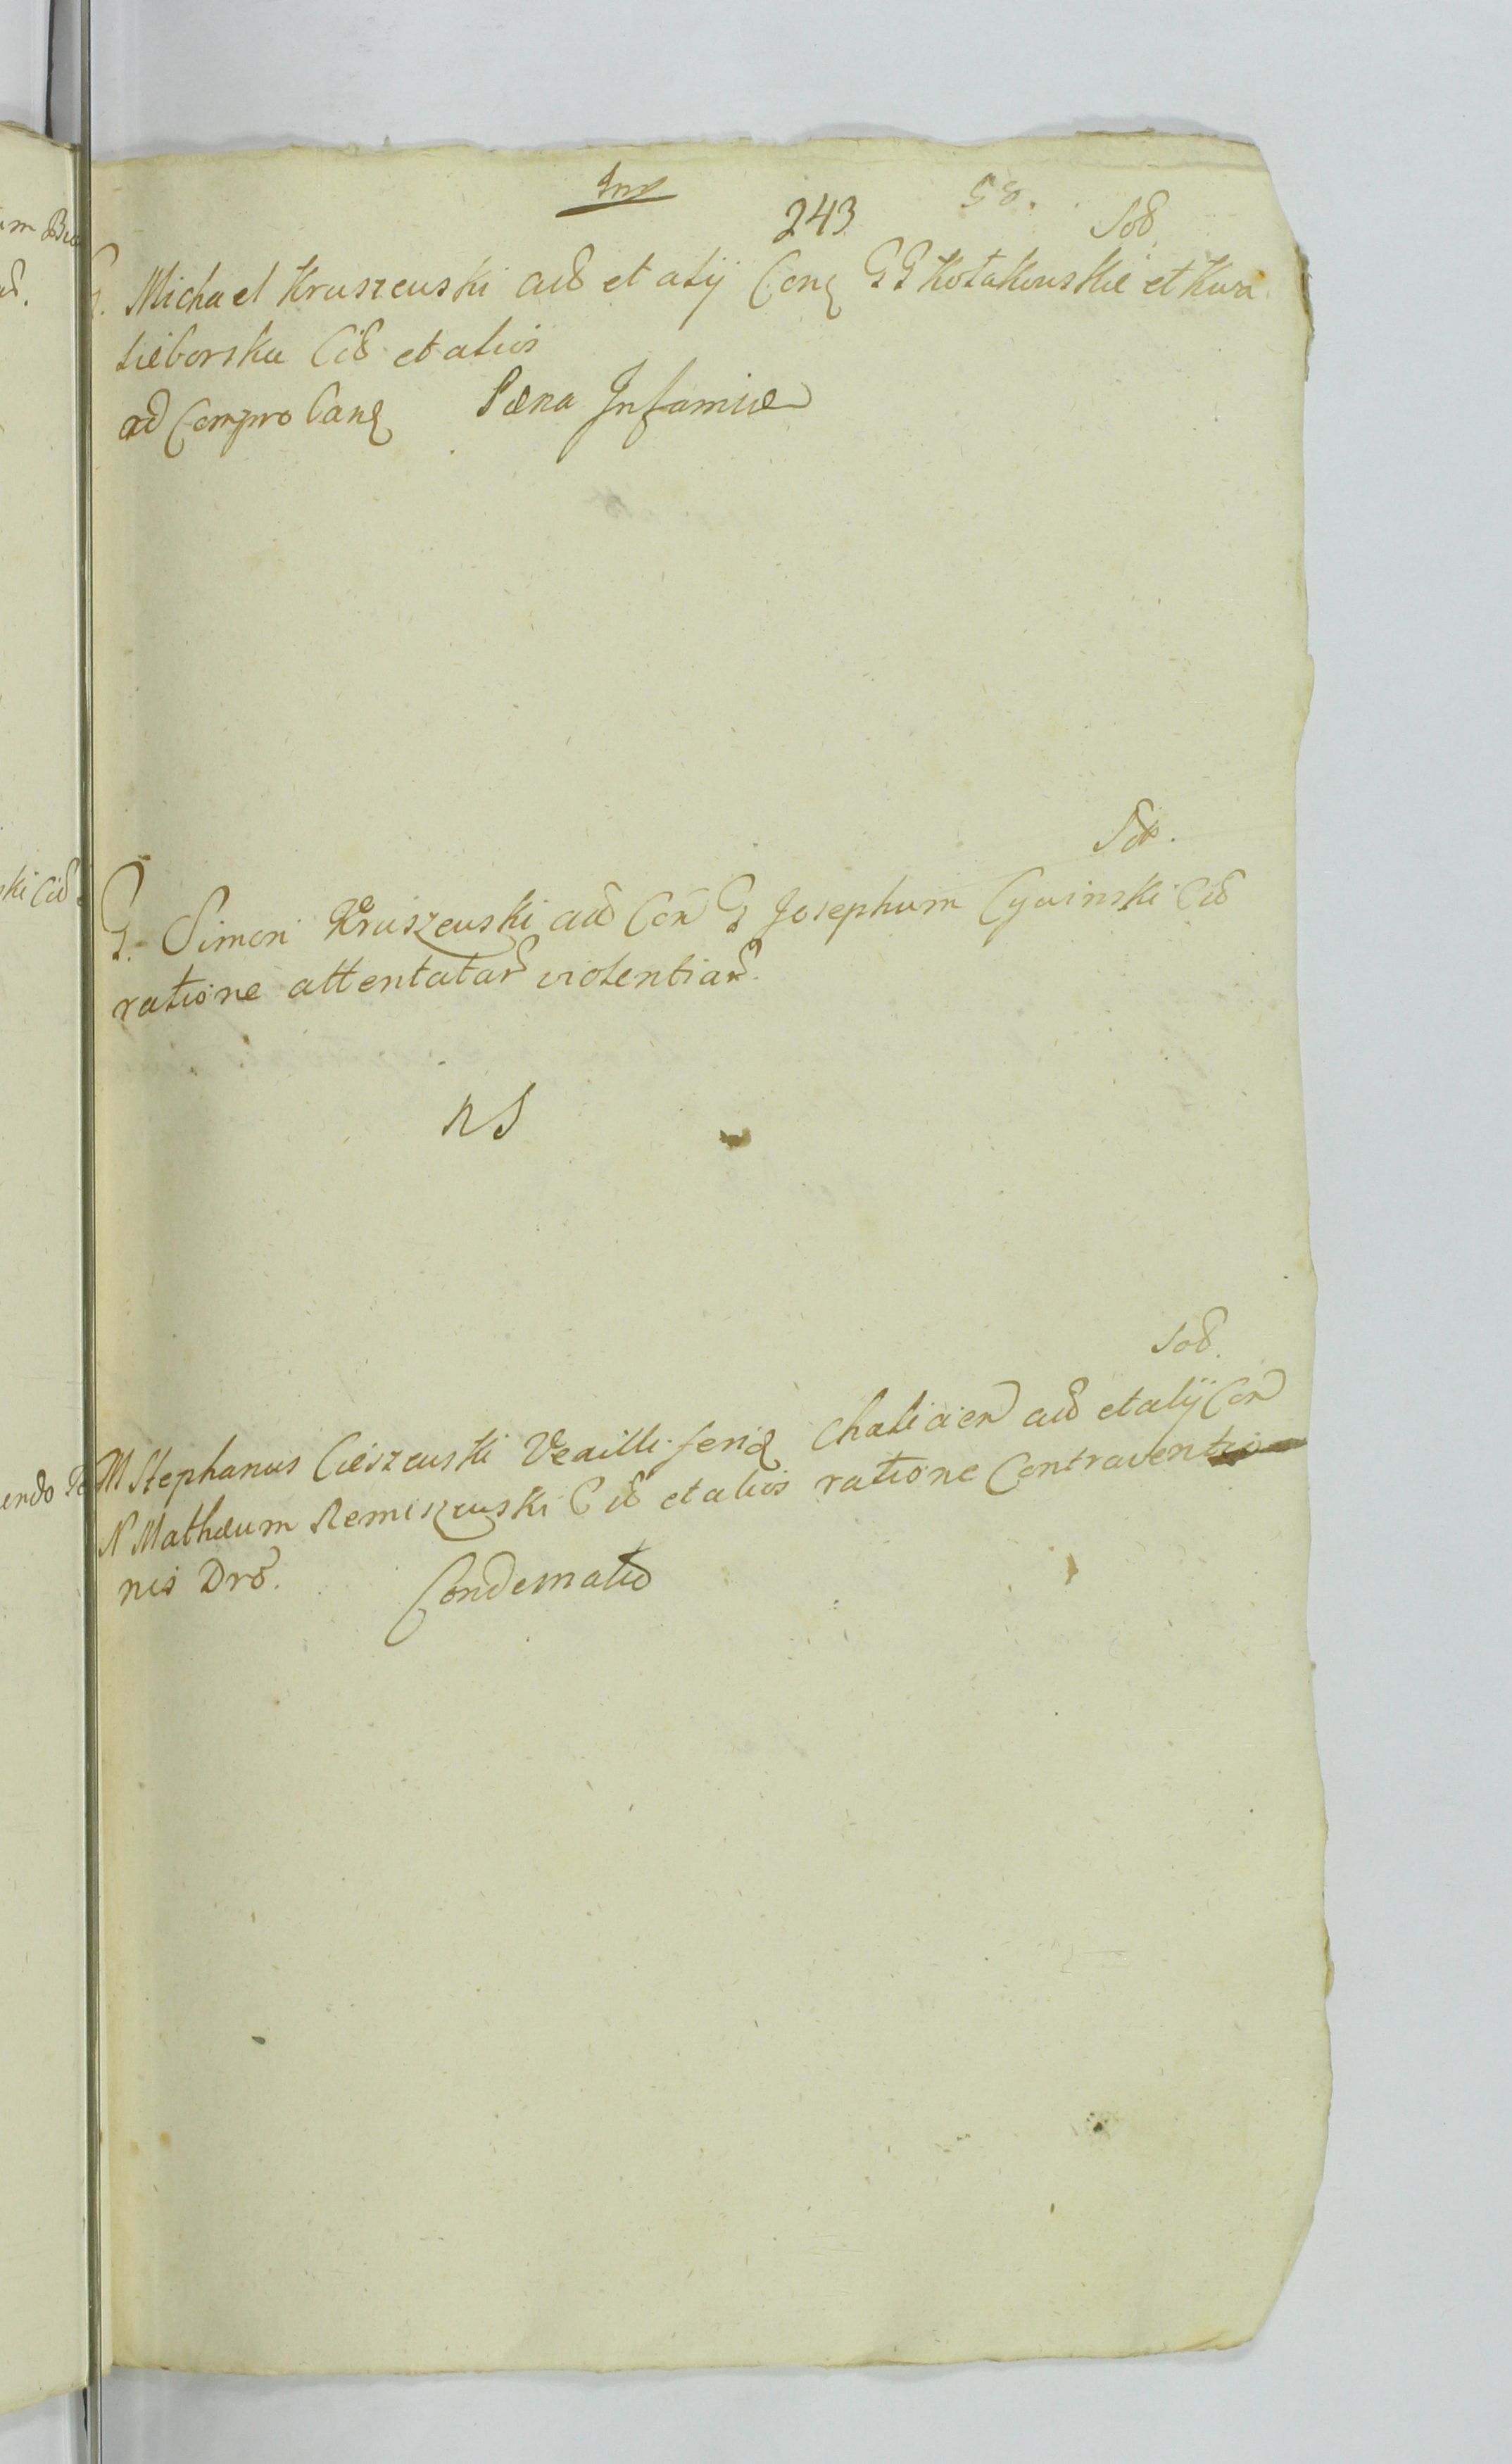 243 58.
Sod.
G. Michael Kruszewski acd et alij Conq GG Kołakowskie et Kura
tieborskie Cid et alios
ad Compro Canq Pæna Infamiæ
G. Simon Kruszewski acd Con G Josephum Cywinski Cid
ratione attentatar violentiar.
NS
Sod.
M Stephanus Cieszewski Vexilliferiq acd et alij Con
N Mathæum Remiszewski Cid et alios ratione Contraventio
nis Dro. Condemnatio